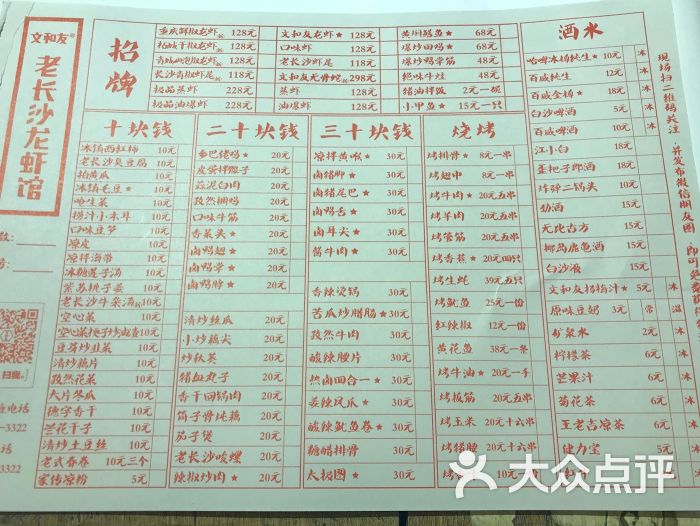 文和友®
老长沙龙虾馆
招牌
128元
128元
128元
长沙青椒虾尾 118元
极品蒸虾 228元
极品油爆虾 228元
文和友龙虾★ 128元
口味虾 128元
老长沙虾尾 118元
文和友无骨蛇 298元
蒸虾 128元
油爆虾 128元
68元
爆炒田鸡★ 68元
48元
绝味牛蛙 48元
猪油拌饭 2元一碗
小甲鱼★ 15元一只
酒水
哈啤冰杨纯生★ 10元 冰
百威纯生 12元 冰
百威金杨★ 18元 冰
白沙啤酒 5元 冰
百威啤酒 10元 冰
江小白 18元
歪把子郎酒 35元
炸弹二锅头 15元
劲酒 15元
无比古方 15元
椰岛鹿龟酒 15元
白沙液 15元
文和友杨梅汁★ 5元 冰
原味豆奶 3元 常 温
矿泉水 2元 冰
柠檬茶 6元 冰
芒果汁 6元 冰
菊花茶 6元 冰
王老吉凉茶 6元 冰
健力宝 冰
十块钱
冰镇西红柿 10元
老长沙臭豆腐 10元
拍黄瓜 10元
冰镇毛豆★ 10元
呛生菜 10元
捞汁小木耳 10元
口味豆笋 10元
凉皮 10元
凉拌海带 10元
冰糖莲子汤 10元
紫苏桃子姜 10元
老长沙牛杂汤 10元
空心菜 10元
10元
豆芽炒韭菜 10元
清炒藕片 10元
孜然花菜 10元
大片冬瓜 10元
德字香干 10元
兰花干子 10元
清炒土豆丝 10元
老式春卷 10元三个
家传凉粉 5元
二十块钱
乡巴佬鸡★ 20元
皮蛋拌椒子 20元
蒜泥白肉 20元
孜然捆鸡 20元
口味牛筋 20元
香菜头★ 20元
卤鸭翅★ 20元
卤鸭掌★ 20元
卤鸭脖★ 20元
清炒丝瓜 20元
小炒藕尖 20元
炒秋葵 20元
猪血丸子 20元
香干回锅肉 20元
筒子骨炖藕 20元
茄子煲 20元
老长沙唆螺 20元
辣椒炒肉★ 20元
三十块钱
凉拌黄喉★ 30元
卤猪脚★ 30元
卤猪尾巴★ 30元
卤鸭舌★ 30元
卤耳尖★ 30元
酱牛肉★ 30元
香辣烫锅 30元
苦瓜炒腊肠★ 30元
孜然牛肉 30元
酸辣腰片 30元
热卤四合一★ 30元
姜辣凤爪★ 30元
酸辣鱿鱼卷★ 30元
糖醋排骨 30元
太极图★ 30元
烧烤
烤排骨★ 8元一串
烤翅中 8元一串
烤牛肉★ 20元五串
烤羊肉 20元五串
烤管筋 20元五串
烤香蕉★ 20元四只
烤生蚝 39元五只
烤鱿鱼 25元一份
红辣椒 12元一份
黄花鱼 38元一条
烤牛油★ 20元一手
烤板筋 20元五串
烤玉米 20元十六串
烤猪腰 20元六串
现场扫二维码关注
并发布微信朋友圈
即可
扫我。
-3322
-3322
大众点评